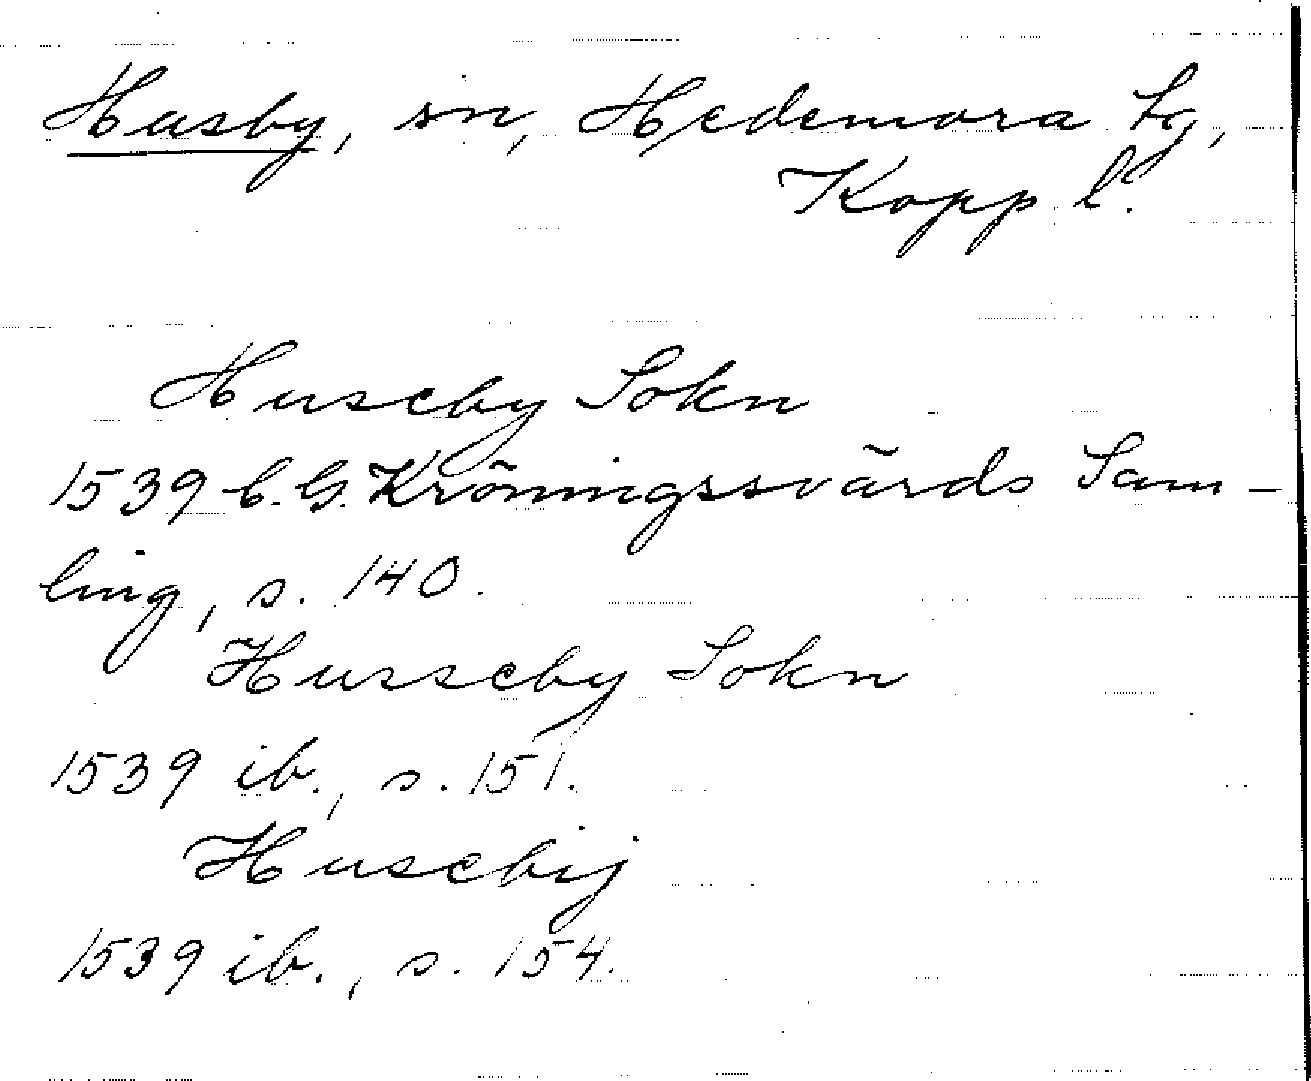 Husby, sn, Hedemora tg,
Kopp l.
Huseby Sokn
1539 C. G. Kröningssvärds Sam-
ling, s. 140.
Husseby Sokn
1539 ib., s. 151.
Husebij
1539 ib., s. 154.